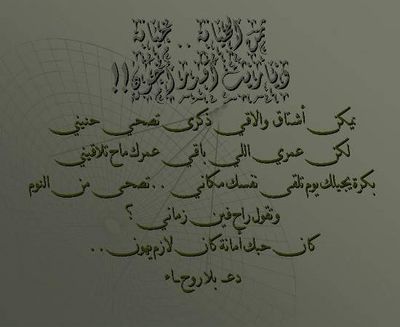 من الخيانة .. خيانة
وياريت أقدر أخون!!
يمكن أشتاق والاقي ذكرى تصحي حنيني
لكن عمري اللي باقي عمرك ماح تلاقيني
بكرة يجيلك يوم تلقى نفسك مكاني .. تصحى من النوم
وتقول راح فين زماني ؟
كان حبك أمانة كان لازم يهون ..
دعـ بلا روح ـاء